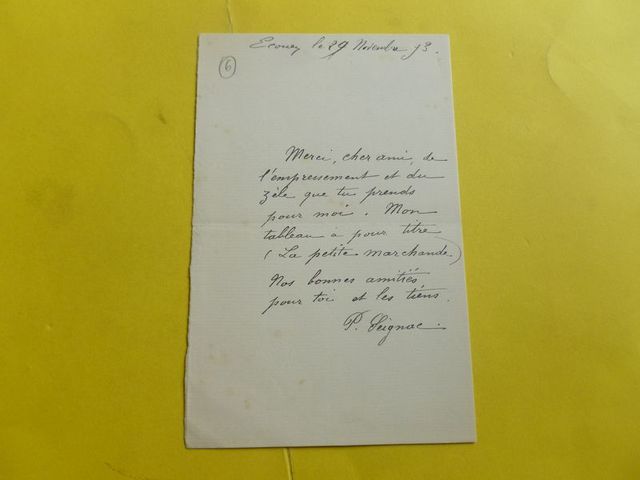 Ecouen le 29 Novembre 73.
6
Merci, cher ami, de
l'empressement et du
zèle que tu prends
pour moi. Mon
tableau a pour titre
(La petite marchande)
Nos bonnes amitiés
pour toi et les tiens.
P. Seignac.